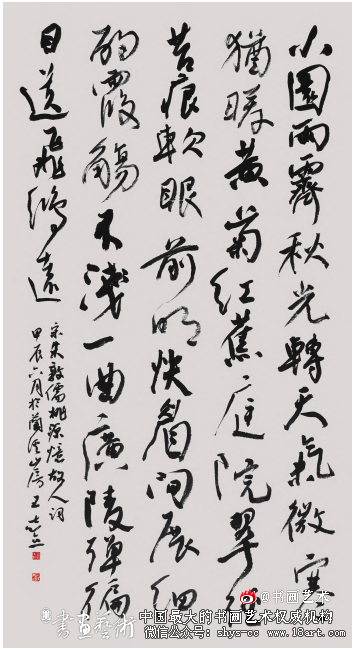 小園雨霽秋光轉天氣微寒
猶暖黄菊紅蕉庭院翠徑
苔痕軟眼前明快眉間展細
酌霞觴不淺一曲廣陵彈徧
目送飛鴻遠
宋朱敦儒桃源憶故人詞
甲辰六月於蘭溪山房王
书画艺术
書畫藝術
中国最大的书画艺术权威机构
微信公众号：shys-cc www.18art.cn